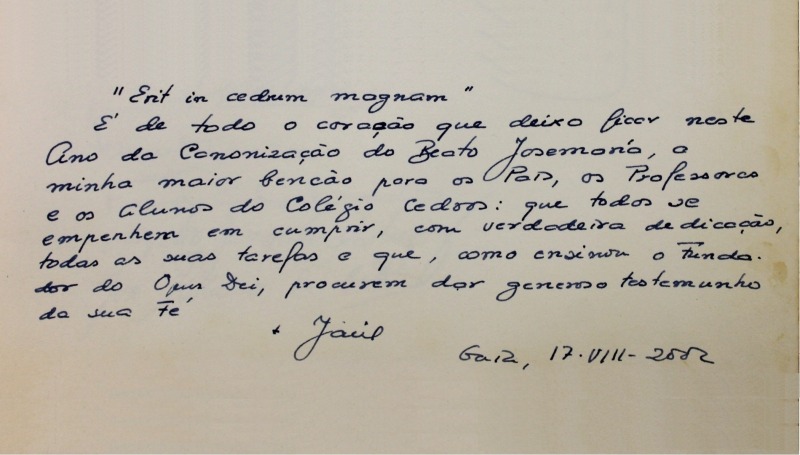 "Erit in cedrum magnam"
É de todo o coração que deixo ficar neste
Ano da Canonização do Beato Josemaría, a
minha maior bencão para os Pais, os Professores
e os alunos do Colégio Cedros: que todos se
empenhem em cumprir, com verdadeira dedicação,
todas as suas tarefas e que, como ensinou o Funda-
dor do Opus Dei, procurem dar generoso testemunho
da sua Fé
+
Gaia, 17-VIII-2002